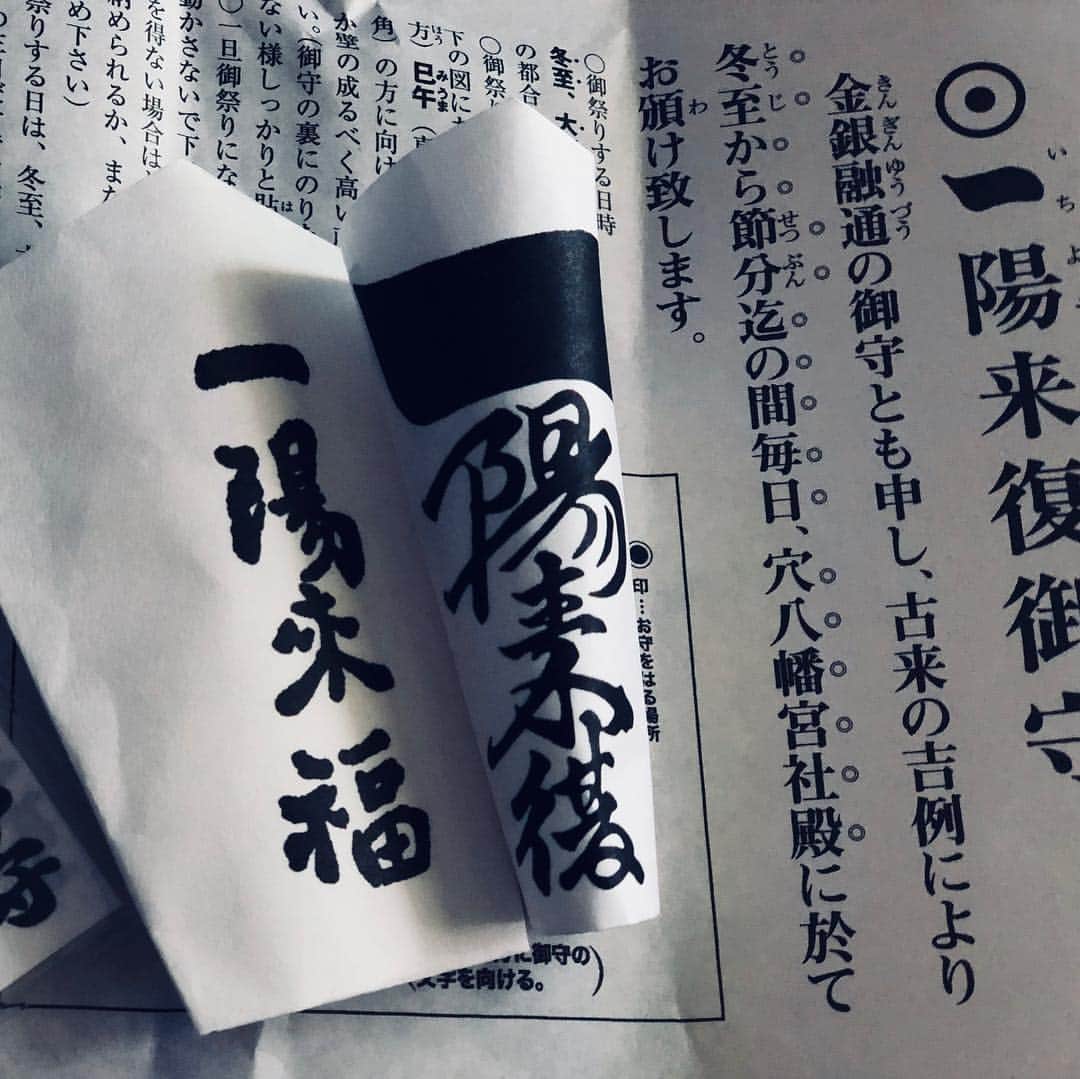 ◉一陽来復御守
いちよ
金銀融通の御守とも申し、古来の吉例により
きんぎんゆうづう
冬至から節分迄の間毎日、穴八幡宮社殿に於て
とうじ せつぶん
お頒け致します。
わ
○御祭りする日時
冬至、大
の都合
○御祭
下の図に
方)巳午(
ほう みうま
角)の方に向け
か壁の成るべく高い
い。(御守の裏にのり
ない様しっかりと貼
は
○一旦御祭りにな
動かさないで下
を得ない場合は
納められるか、また
め下さい)
祭りする日は、冬至、
一陽来復
一陽来福
◉印…お守をはる場所
に御守の
文字を向ける。)